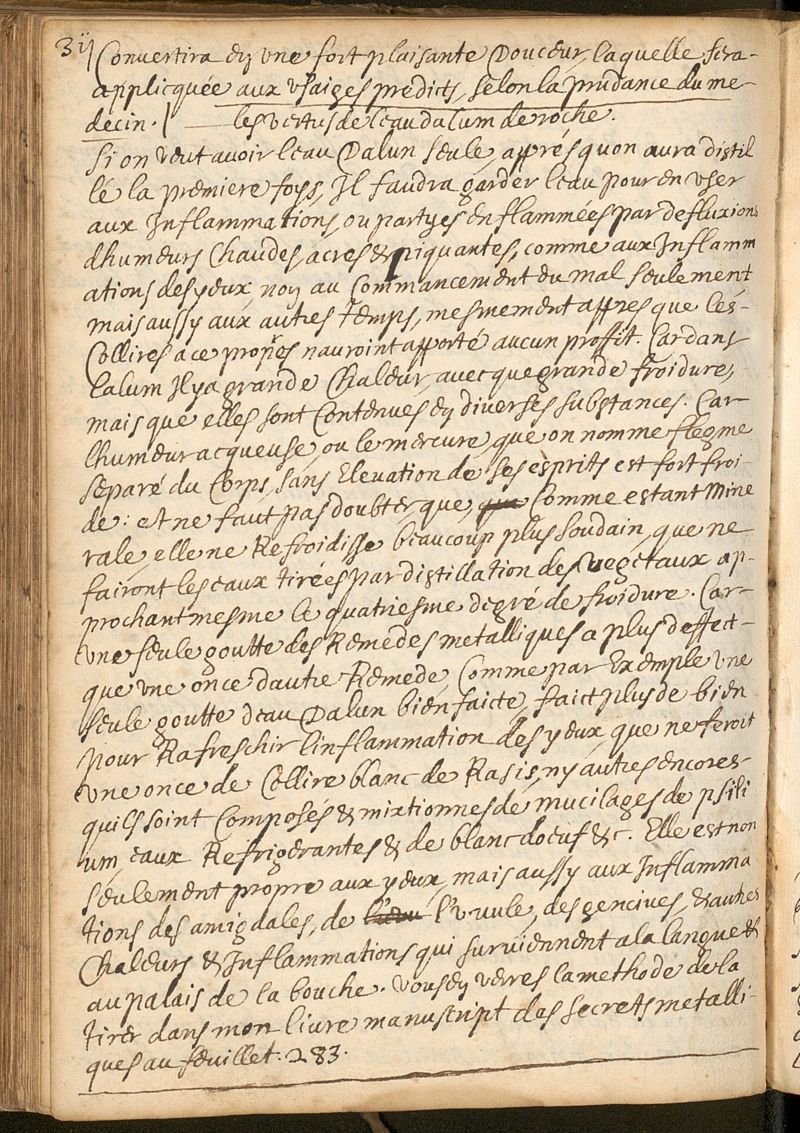 Convertira en une fort plaisante Douceur, laquelle sera
applicquée aux usaiges predicts, selon la prudance du me-
decin. les vertus de l'eau dalum de roche.
Si on veut avoir leau Dalun seule, apprés quon aura distil
lé la premiere foys, Il faudra garder leau pour en user
aux Inflammations, ou partyes enflammées par defluxions
dhumeurs Chaudes, acres & piquantes, comme aux Inflamm
ations des yeux non au Commancement du mal seulement
mais aussy aux autres temps, mesmement appres que les
Collires a ce propres nauroint apporté aucun proffit. Car dans
lalum Il y a grande Chaleur, avecque grande froidure,
mais que elles sont Contenues en diverses substances. Car
lhumeur acqueuse, ou le mercure, que on nomme flegme
separé du Corps, sans Elevation de ses esprits est fort froi-
de: et ne faut pas doubter que, que Comme estant Mine
rale, elle ne Refroidisse beaucoup plus soudain, que ne
fairont les eaux tirées par distillation des vegetaux ap-
prochant mesme le quatriesme degré de froidure. Car
une seule goutte des Remedes metalliques a plus deffect
que une once dautre Remede, Comme par Exemple une
seule goutte deau Dalun bien faicte, faict plus de bien
pour Rafreschir linflammation des yeux que ne feroit
une once de Collire blanc de Rasis, ny autres encores
quils soint Composés & mixtionnes de mucilages de psili
um, eaux Refrigerantes & de blanc doeuf &c. Elle est non
seulement propre aux yeux, mais aussy aux Inflamma
tions des amigdales, de l'uvule, des gencives, & autres
Chaleurs & Inflammations qui surviennent a la langue &
au palais de la bouche. Vous en verres la methode de la
tirer dans mon livre manuscript des secrets metalli-
ques au feuillet. 283.